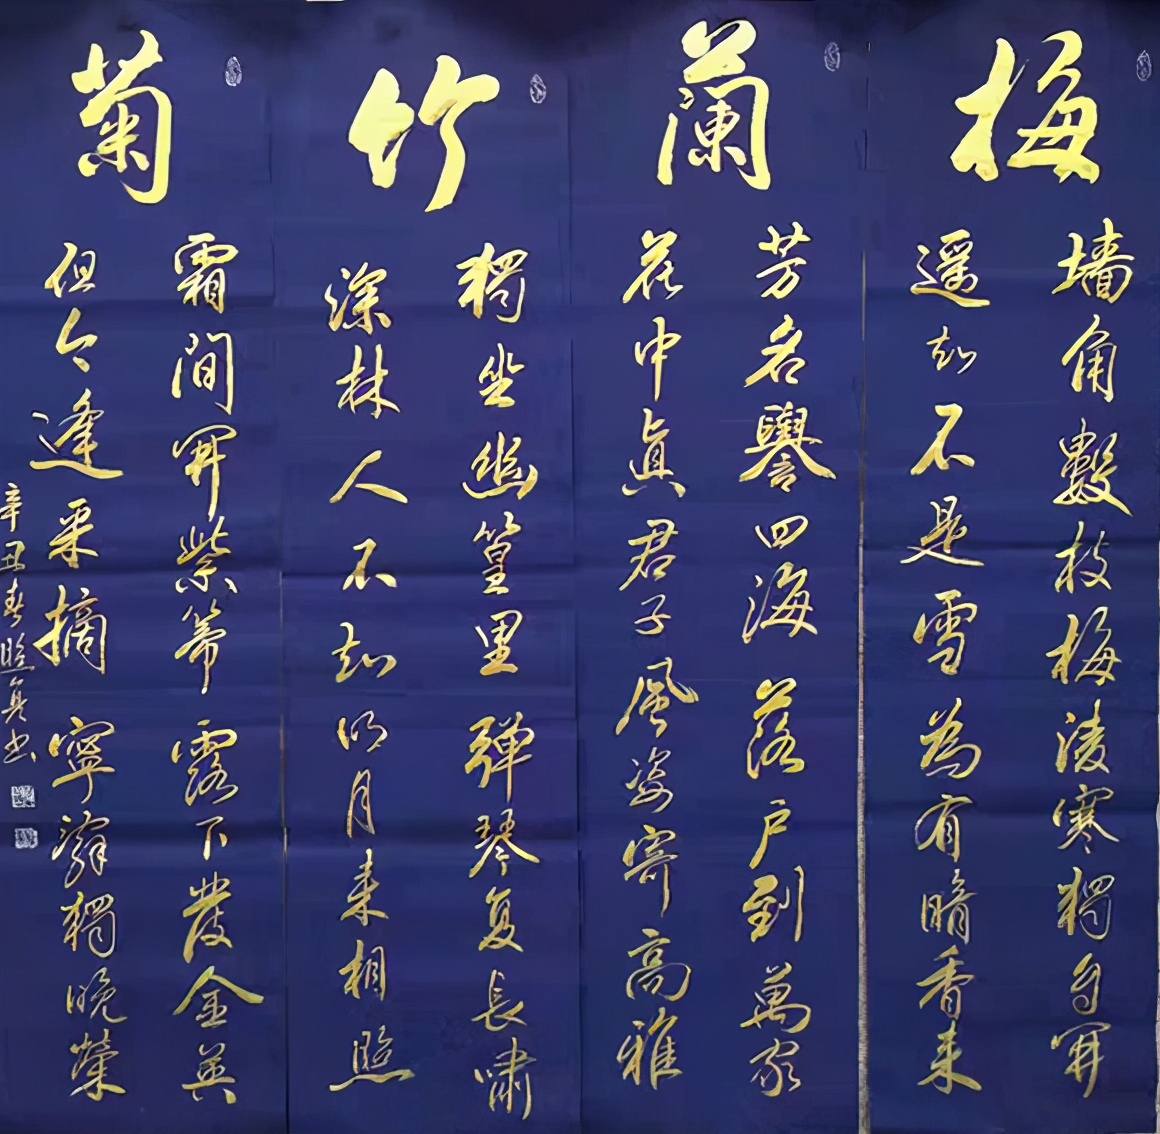 梅
墙角數枝梅凌寒獨自開
遥知不是雪為有暗香来
蘭
芳名譽四海落户到萬家
花中真君子風姿寄高雅
竹
獨坐幽篁里弹琴复長嘯
深林人不知明月来相照
菊
霜間開紫蒂露下發金英
但令逢采摘寧辭獨晚榮
辛丑春照书